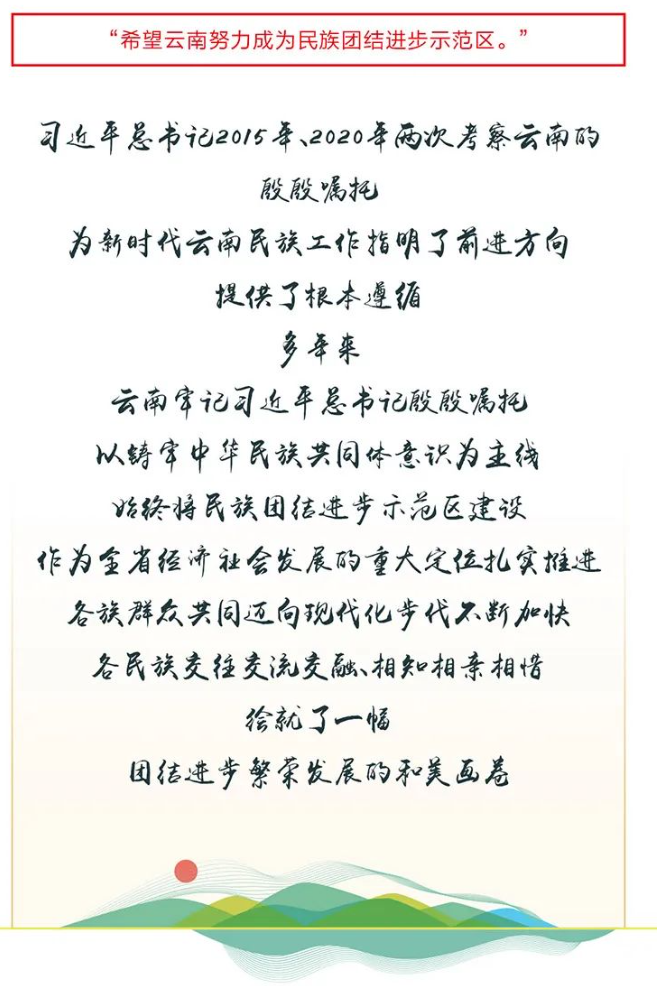 “希望云南努力成为民族团结进步示范区。”
习近平总书记2015年、2020年两次考察云南的
殷殷嘱托
为新时代云南民族工作指明了前进方向
提供了根本遵循
多年来
云南牢记习近平总书记殷殷嘱托
以铸牢中华民族共同体意识为主线
始终将民族团结进步示范区建设
作为全省经济社会发展的重大定位扎实推进
各族群众共同迈向现代化步伐不断加快
各民族交往交流交融、相知相亲相惜
绘就了一幅
团结进步繁荣发展的和美画卷